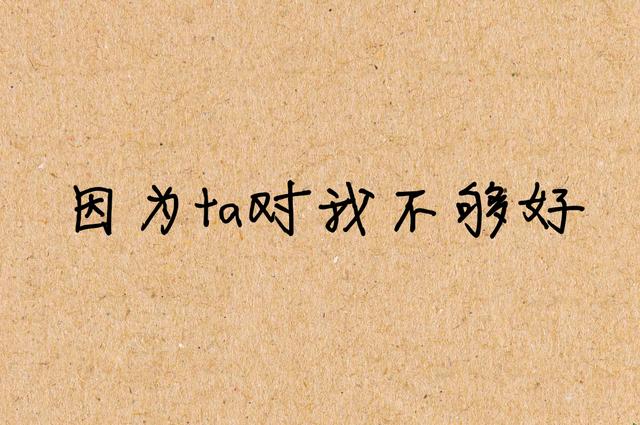 因为ta对我不够好